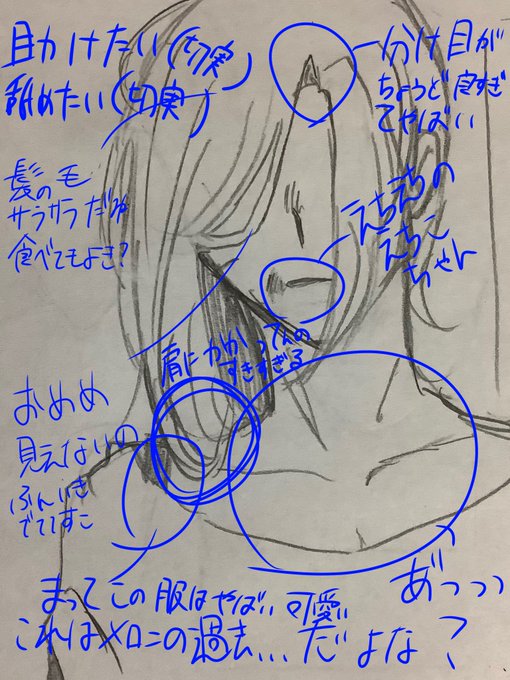 助けたい(切実)
舐めたい(切実)
分け目が
ちょうど良すぎ
てやばい
髪の毛
サラサラだね
食べてもよき?
えちえちの
えちこ
ちゃん
肩にかかってんの
すきすぎる
おめめ
見えないの
ふんいき
でててすこ
まってこの服はやばい可愛い
あ゛っっっ
これはメロニの過去...だよな?